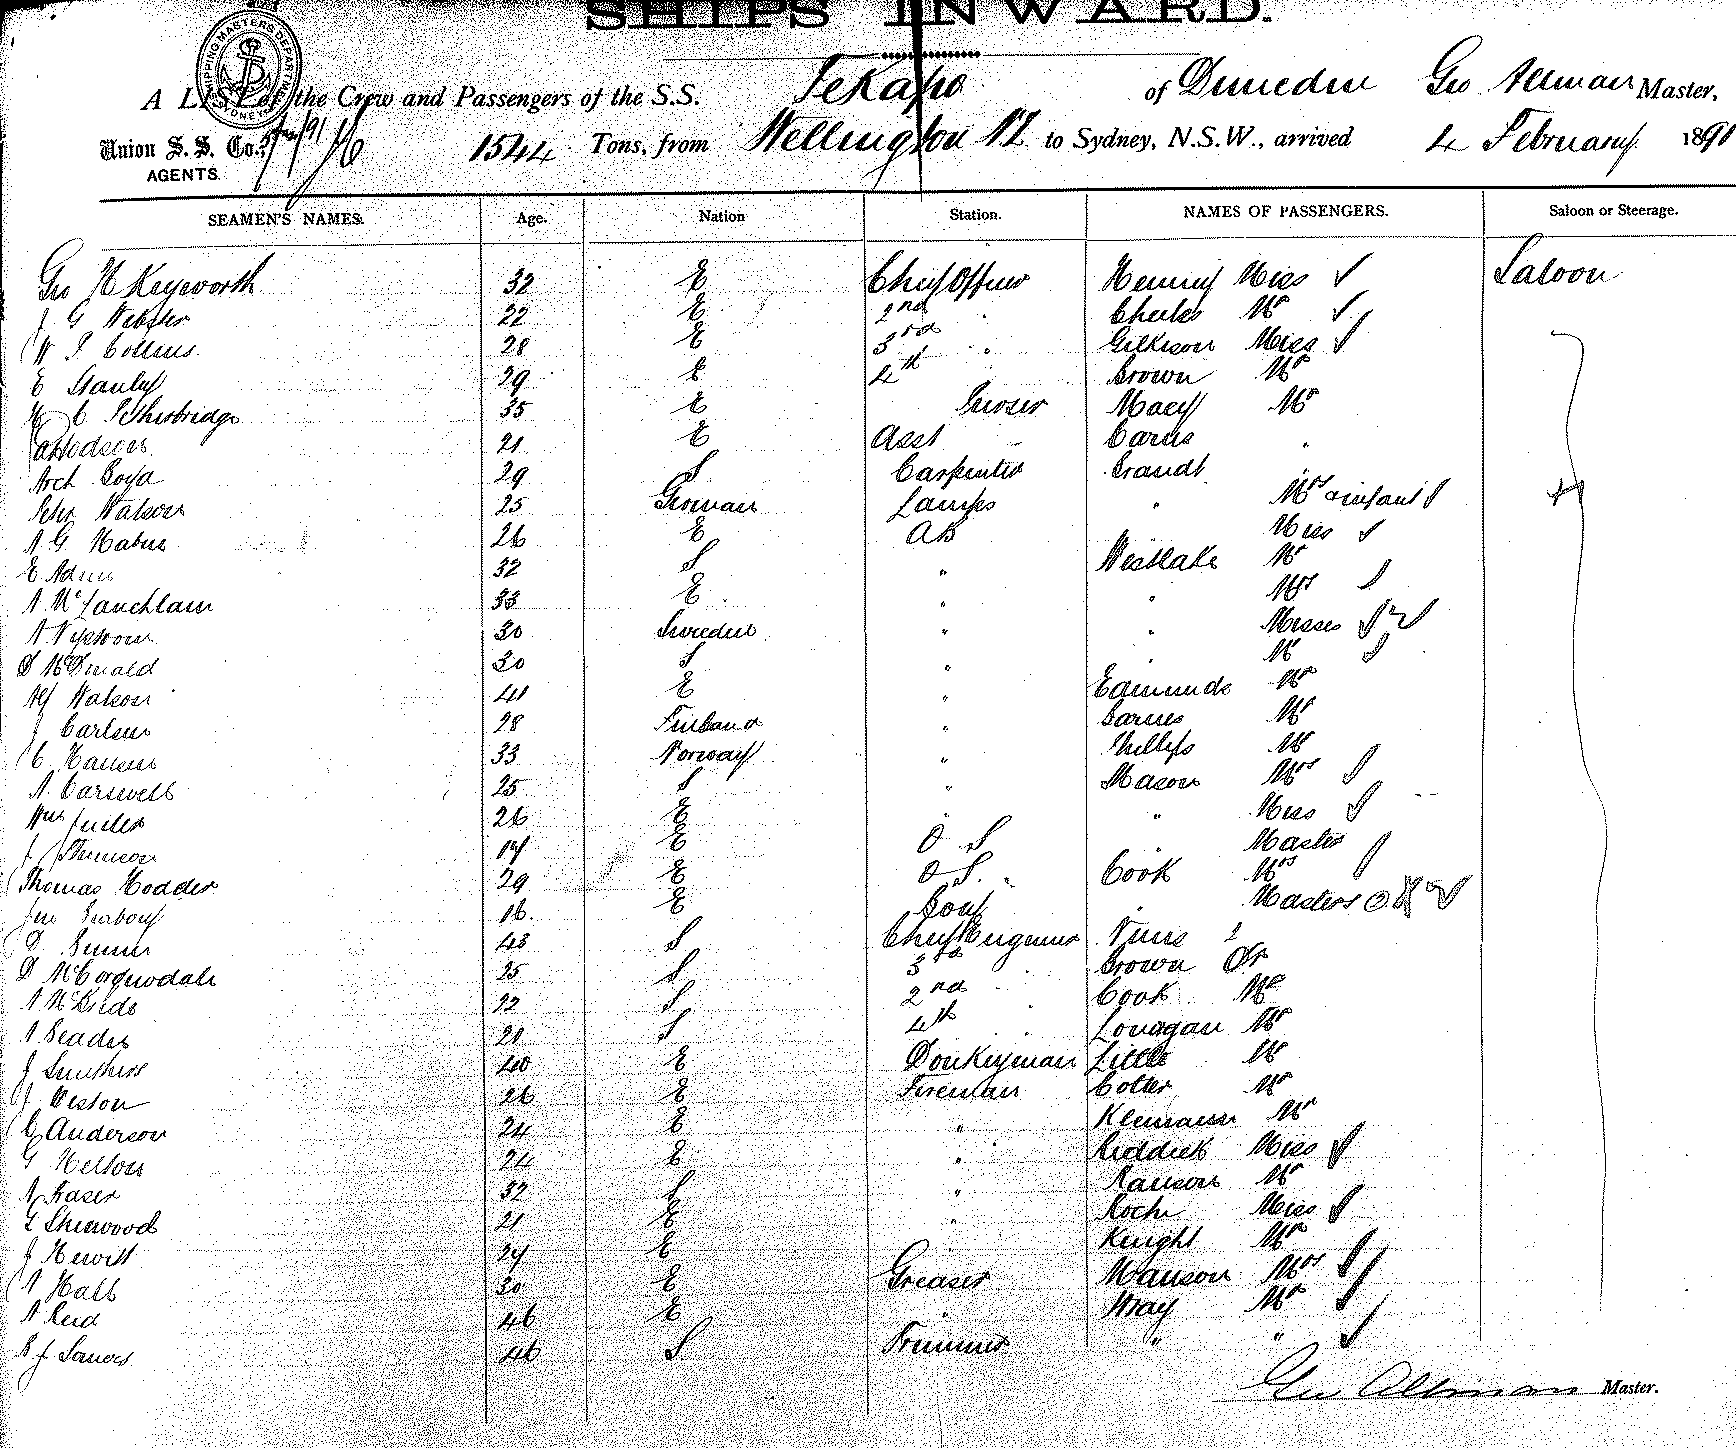 SHIPS INWARD.
SHIPPING MASTER'S DEPARTMENT SYDNEY
A LIST of the Crew and Passengers of the S.S. Tekapo of Dunedin Geo Allman Master,
Union S. S. Co., AGENTS. 1544 Tons, from Wellington NZ to Sydney, N.S.W., arrived 4 February 1891
SEAMEN'S NAMES. Age. Nation Station. NAMES OF PASSENGERS. Saloon or Steerage.
Geo H Keyworth 32 E Chief Officer Henning Miss Saloon
J G Webster 22 E 2nd " Charles Mr
W P Collins 28 E 3rd " Gilkison Miss
E Stanley 29 E 4th Brown Mr
H C Petherbridge 35 E Purser Macey Mr
Hodson 21 E Asst " Carns "
Arch Boyd 29 S Carpenter Brandt
Petr Watson 25 German Lamps " Mrs & infant
26 E AB " Miss
E 32 S " Westlake Mr
A McLauchlan 33 E " " Mrs
A 30 Sweden " " Misses 2
D McDonald 30 S " " M
Alf Watson 41 E " Edmunds Mr
J Carlson 28 Finland " Barnes Mr
C Hansen 33 Norway " Mr
A Carswell 25 S " Mason Mrs
Wm 26 E " Miss
J 17 E O S " Master
Thomas Hodder 29 E O S. " Cook Mrs
Jno 16 E Boy " Masters 2
D 43 S Chief Engineer 2
D McCorquodale 25 S 3rd " Brown Dr
A McBride 22 S 2nd " Cook Mr
A 21 S 4th " Lonagan Mr
J Smithers 40 E Donkeyman Little Mr
J Weston 26 E Fireman Cotter Mr
G Anderson 24 E " Mr
G Nelson 24 E " Riddick Miss
A Fraser 32 S " Ranson Mr
G Sherwood 21 E " Roche Miss
J Hewitt 24 E " Knight Mr
A Hall 30 E Greaser Manson Mrs
A Reid 46 E " Wray Mr
R J 46 S Trimmer " "
Geo Allman Master.